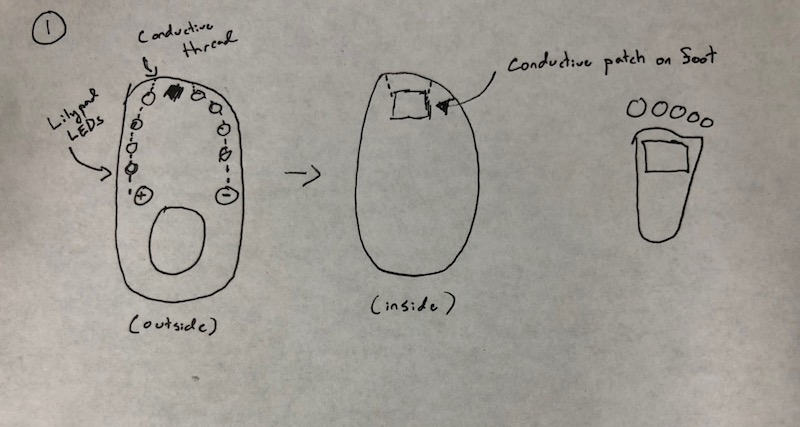 1
Conductive
thread
Lilypad
LEDs
+
-
(outside)
Conductive patch on foot
(inside)